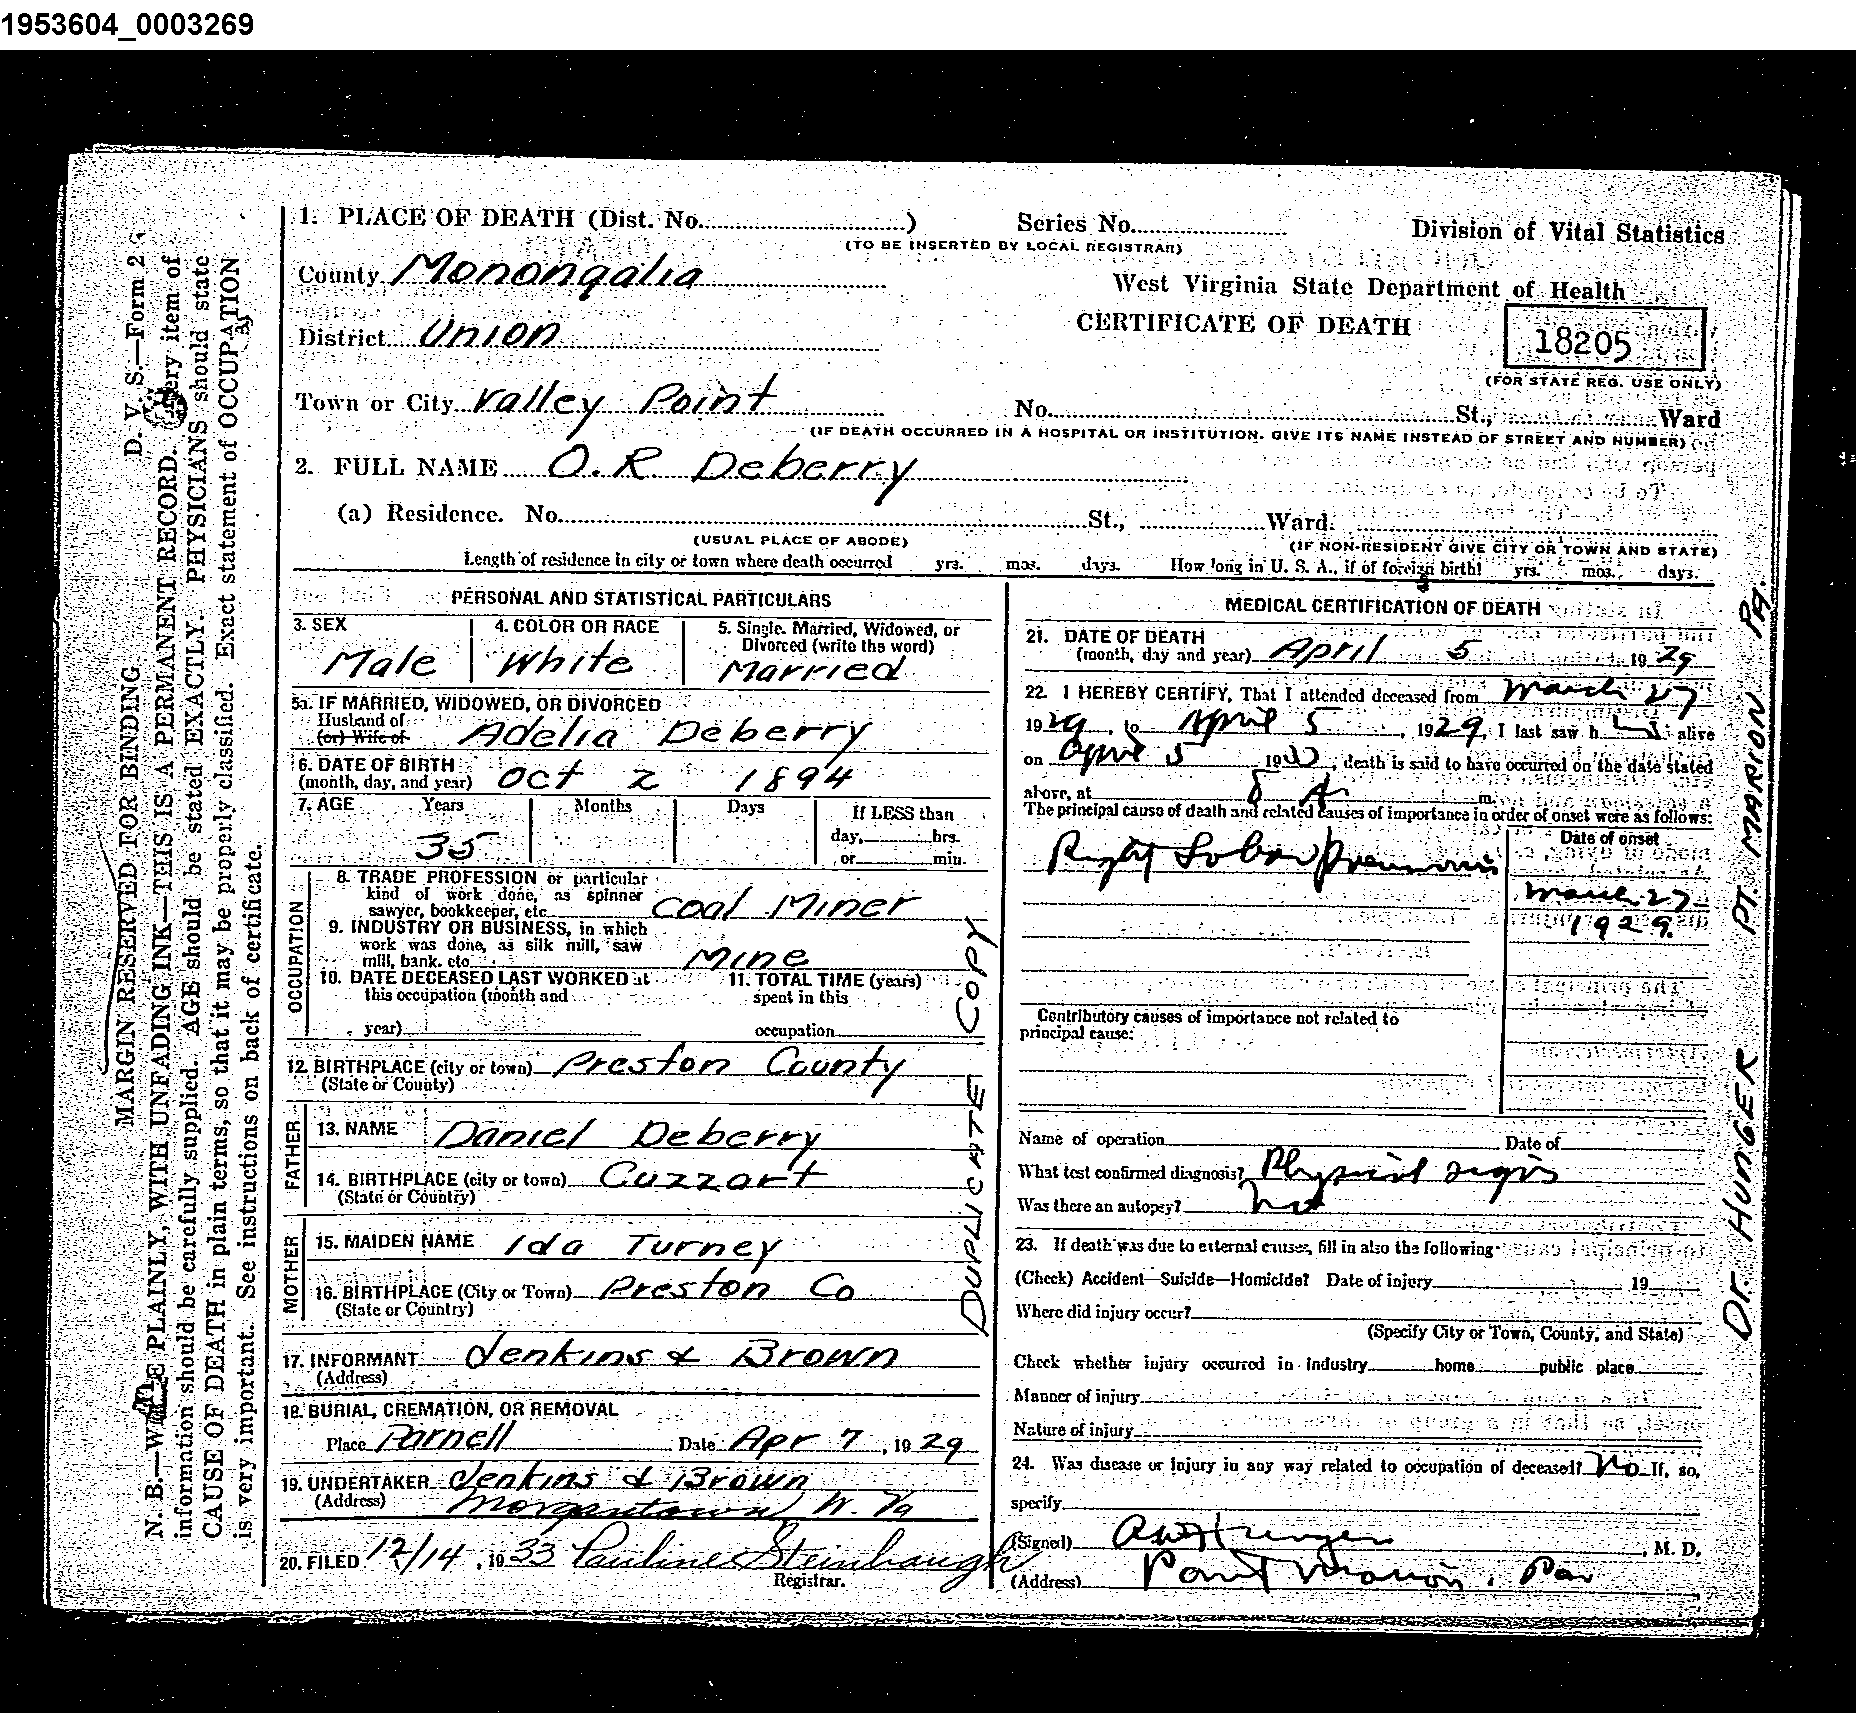 1953604_0003269
1. PLACE OF DEATH (Dist. No. ) Series No. Division of Vital Statistics
(TO BE INSERTED BY LOCAL REGISTRAR)
County Monongalia
West Virginia State Department of Health
CERTIFICATE OF DEATH
18205
(FOR STATE REG. USE ONLY)
District Union
Town or City Valley Point No. St., Ward
(IF DEATH OCCURRED IN A HOSPITAL OR INSTITUTION, GIVE ITS NAME INSTEAD OF STREET AND NUMBER)
2. FULL NAME O. R Deberry
(a) Residence. No. St., Ward.
(USUAL PLACE OF ABODE) (IF NON-RESIDENT GIVE CITY OR TOWN AND STATE)
Length of residence in city or town where death occurred yrs. mos. days. How long in U. S. A., if of foreign birth? yrs. mos. days.
PERSONAL AND STATISTICAL PARTICULARS
3. SEX 4. COLOR OR RACE 5. Single, Married, Widowed, or
Divorced (write the word)
Male White Married
5a. IF MARRIED, WIDOWED, OR DIVORCED
Husband of
(or) Wife of Adelia Deberry
6. DATE OF BIRTH
(month, day, and year) Oct 2 1894
7. AGE Years Months Days If LESS than
day, hrs.
or min.
35
OCCUPATION
8. TRADE PROFESSION or particular
kind of work done, as spinner
sawyer, bookkeeper, etc Coal Miner
9. INDUSTRY OR BUSINESS, in which
work was done, as silk mill, saw
mill, bank, etc. Mine
10. DATE DECEASED LAST WORKED at 11. TOTAL TIME (years)
this occupation (month and spent in this
year) occupation
12. BIRTHPLACE (city or town) Preston County
(State or County)
FATHER
13. NAME Daniel Deberry
14. BIRTHPLACE (city or town) Cuzzart
(State or Country)
MOTHER
15. MAIDEN NAME Ida Turney
16. BIRTHPLACE (City or Town) Preston Co
(State or Country)
17. INFORMANT Jenkins & Brown
(Address)
18. BURIAL, CREMATION, OR REMOVAL
Place Parnell Date Apr 7, 1929
19. UNDERTAKER Jenkins & Brown
(Address) Morgantown W. Va
20. FILED 12/14, 1933 Pauline Steinbaugh
Registrar.
DUPLICATE COPY
MEDICAL CERTIFICATION OF DEATH
21. DATE OF DEATH
(month, day and year) April 5 1929
22. I HEREBY CERTIFY, That I attended deceased from March 27
1929, to April 5, 1929, I last saw h alive
on April 5 19 , death is said to have occurred on the date stated
above, at 8 A. m.
The principal cause of death and related causes of importance in order of onset were as follows:
Date of onset
Right Lobar Pneumonia
March 27
1929.
Contributory causes of importance not related to
principal cause:
Name of operation Date of
What test confirmed diagnosis? Physical signs
Was there an autopsy?
23. If death was due to external causes, fill in also the following
(Check) Accident—Suicide—Homicide? Date of injury 19
Where did injury occur?
(Specify City or Town, County, and State)
Check whether injury occurred in industry home public place
Manner of injury
Nature of injury
24. Was disease or injury in any way related to occupation of deceased? No If, so,
specify
(Signed) Hunger, M. D.
(Address) Point Marion, Pa
Dr. HUNGER PT. MARION PA.
D. V. S.—Form 2
MARGIN RESERVED FOR BINDING
N. B.—WRITE PLAINLY, WITH UNFADING INK—THIS IS A PERMANENT RECORD. Every item of
information should be carefully supplied. AGE should be stated EXACTLY. PHYSICIANS should state
CAUSE OF DEATH in plain terms, so that it may be properly classified. Exact statement of OCCUPATION
is very important. See instructions on back of certificate.